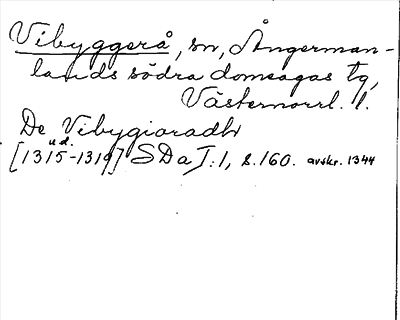 Vibyggerå, sn, Ångerman-
lands södra domsagas tg,
Västernorrl. l.
De Vibygiaradh
u.d.
[1315-1319] SDa I:1, s.160. avskr. 1344